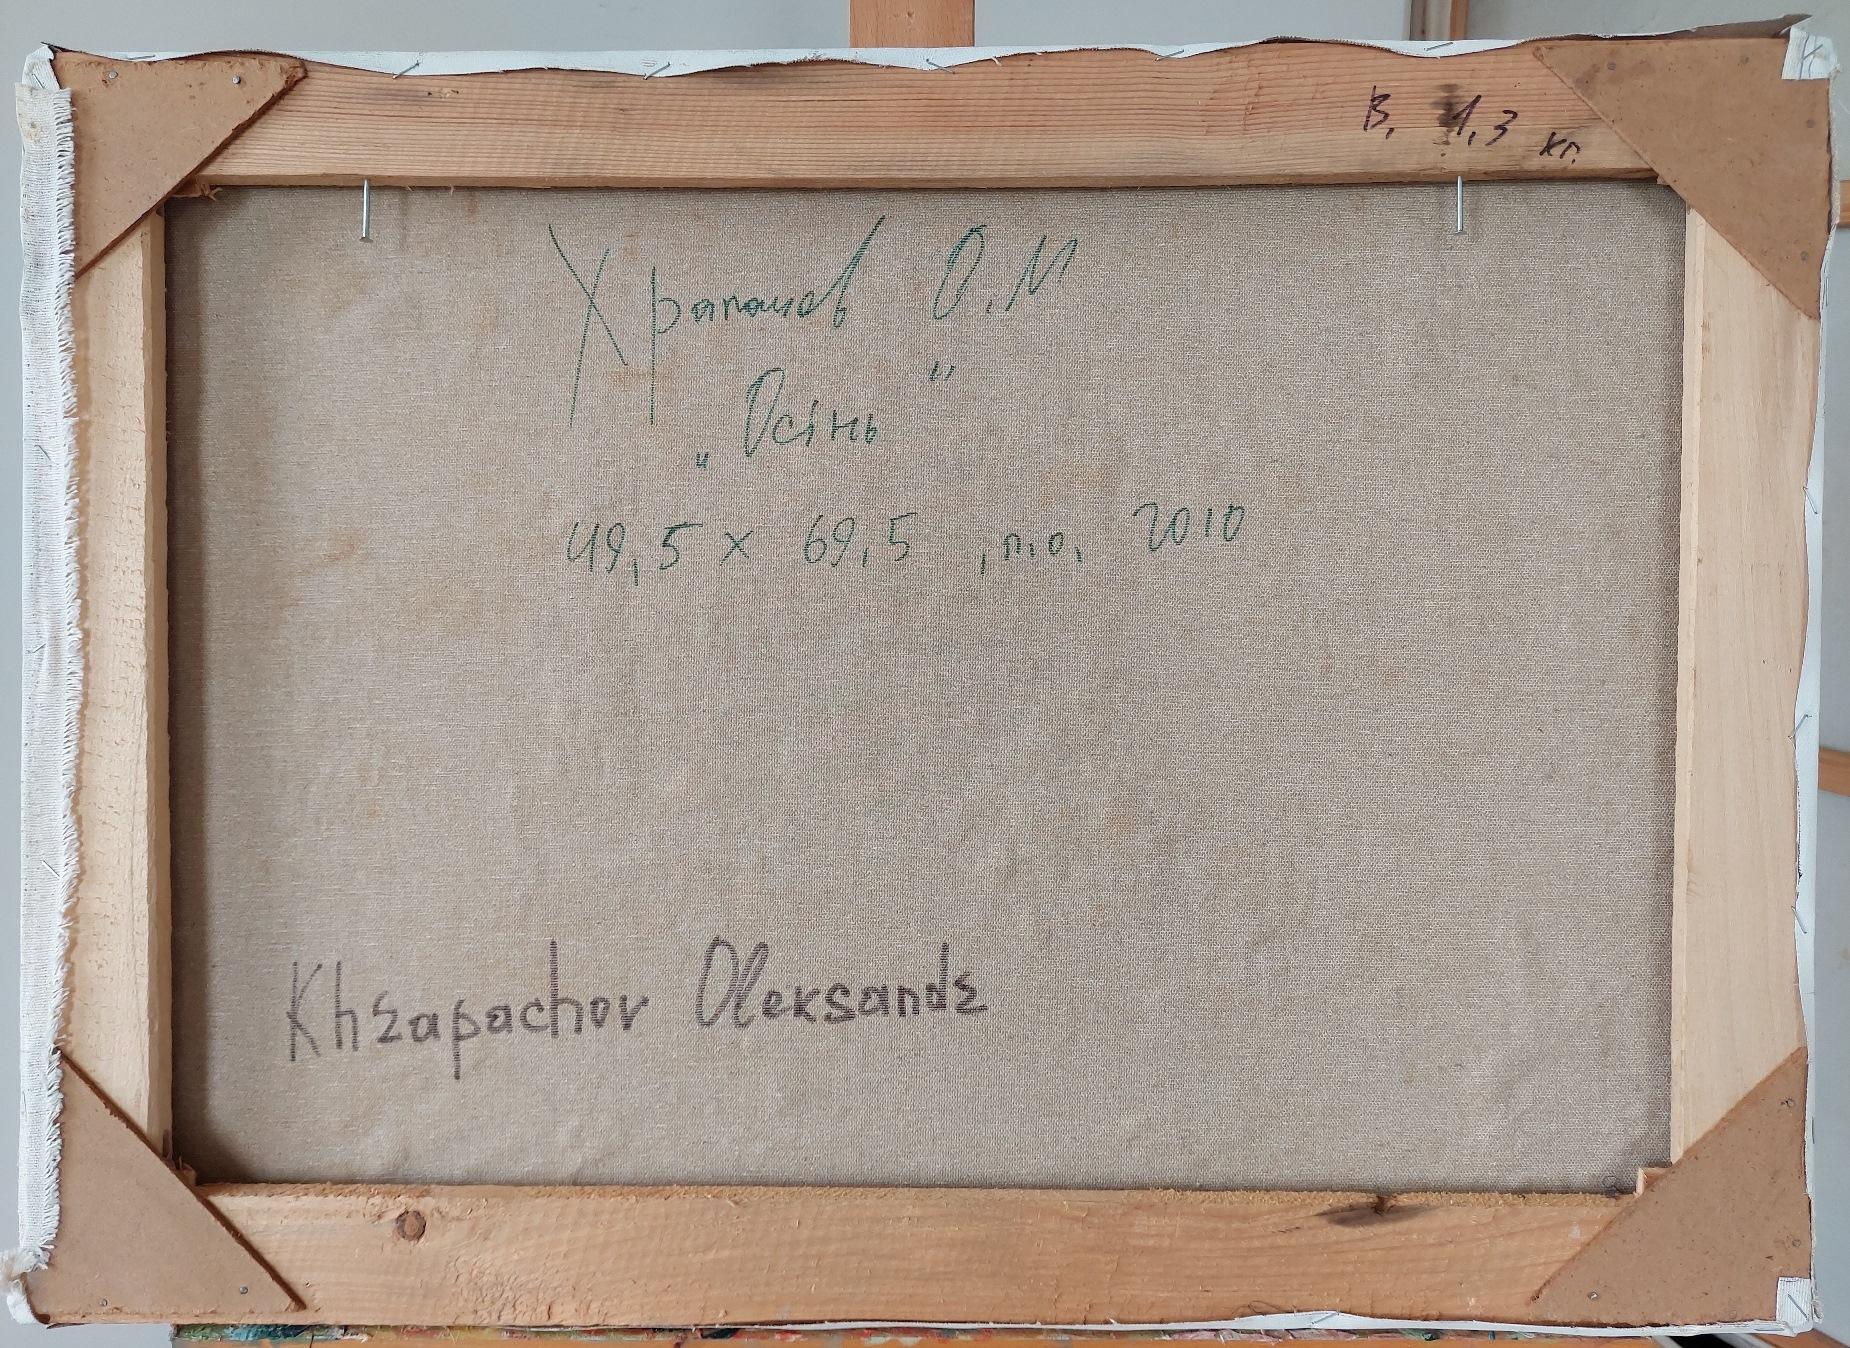 В. 1,3 кг.
Храпачов О.М
„Осінь"
49,5 x 69,5 , п.о, 2010
Khrapachov Oleksandr